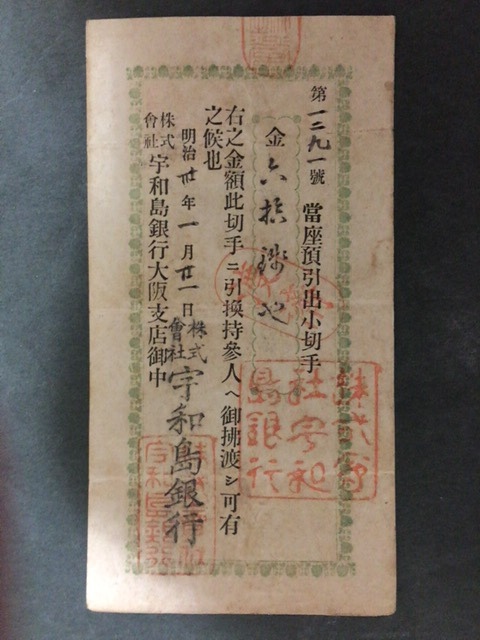 第一二九一號 當座預引出小切手
金六拾錢也
右之金額此切手ニ引換持參人ヘ御拂渡シ可有
之候也
明治卅年一月廿一日
株式會社宇和島銀行
株式會社宇和島銀行大阪支店御中
株式會
社宇和
島銀行